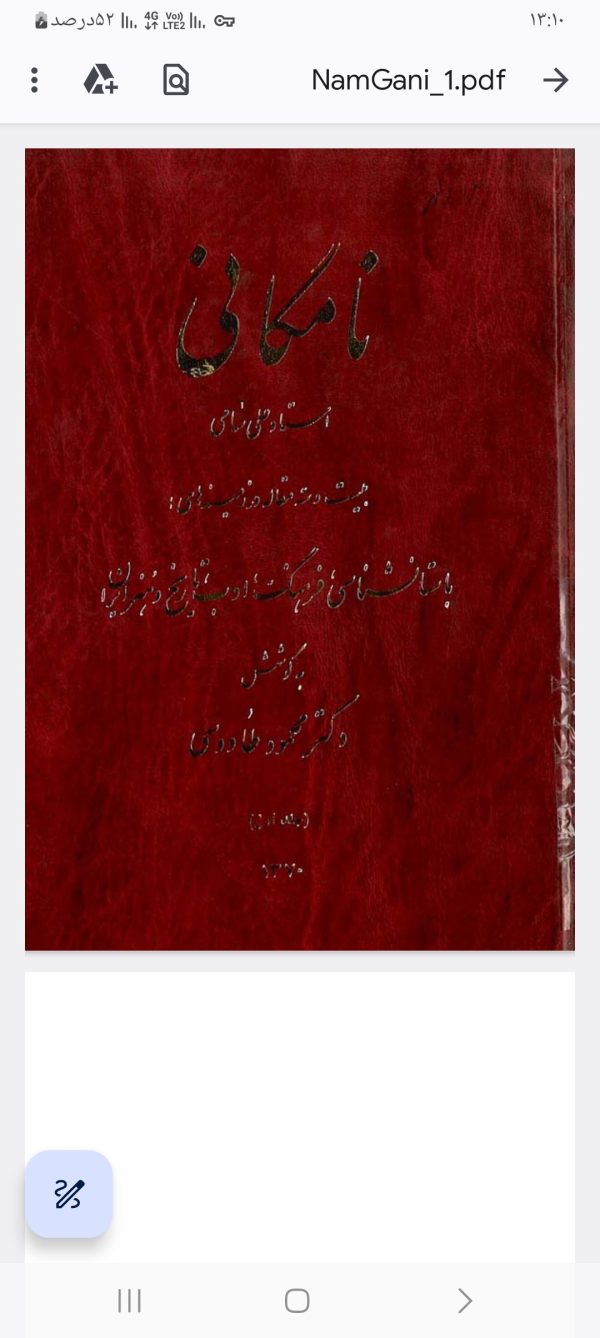 ۱۳:۱۰
۵۲درصد
4G
Vo))
LTE2
NamGani_1.pdf
نامگانی
استاد علی سامی
بیست و سه مقاله در زمینه‌های:
باستانشناسی، فرهنگ، ادب، تاریخ و هنر ایران
به کوشش
دکتر محمود طاووسی
(جلد اول)
۱۳۷۰